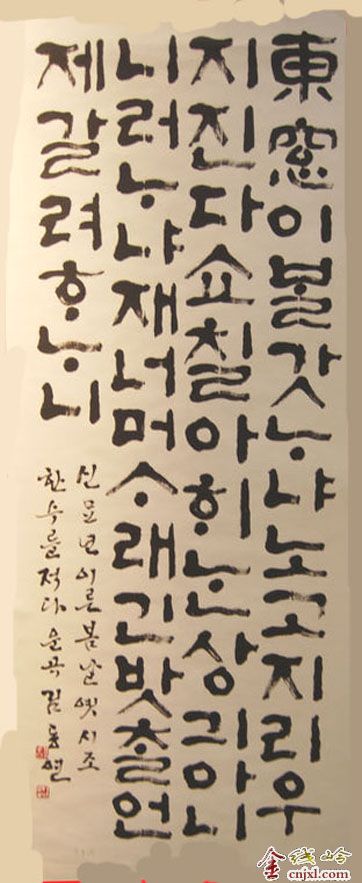 東窓이볼갓ᄂᆞ냐노고지리우
지진다쇼칠아ᄒᆡᄂᆞᆫ상긔아니
니러ᄂᆞ냐재너머ᄉᆞ래긴밧츨언
제갈려ᄒᆞᄂᆞ니
신묘년이른봄날옛시조
한수를적다 운곡김동연
金线岭
cnjxl.com